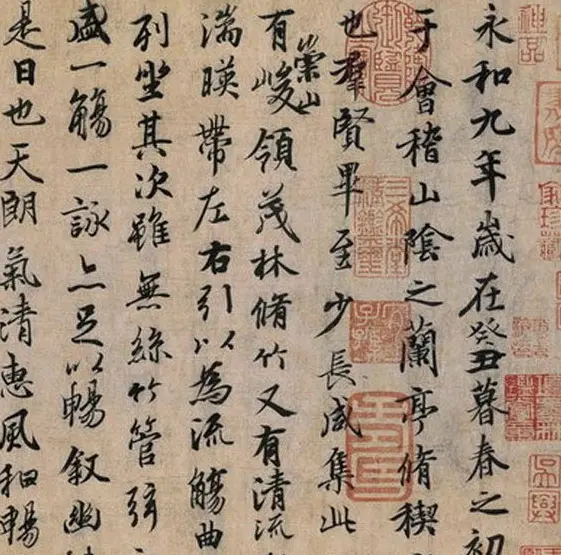 永和九年歲在癸丑暮春之初
于會稽山陰之蘭亭脩稧
也羣賢畢至少長咸集此
有崇山峻領茂林脩竹又有清流
湍暎帶左右引以為流觴曲
列坐其次雖無絲竹管弦
盛一觴一詠亦足以暢敘幽
是日也天朗氣清惠風和暢
神品
三希堂精鑑璽
宜子孫